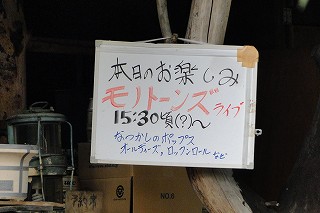 本日のお楽しみ
モノトーンズ ライブ
15:30頃(?)〜
なつかしのポップス
オールディーズ, ロックンロール など
予約席
NO.8